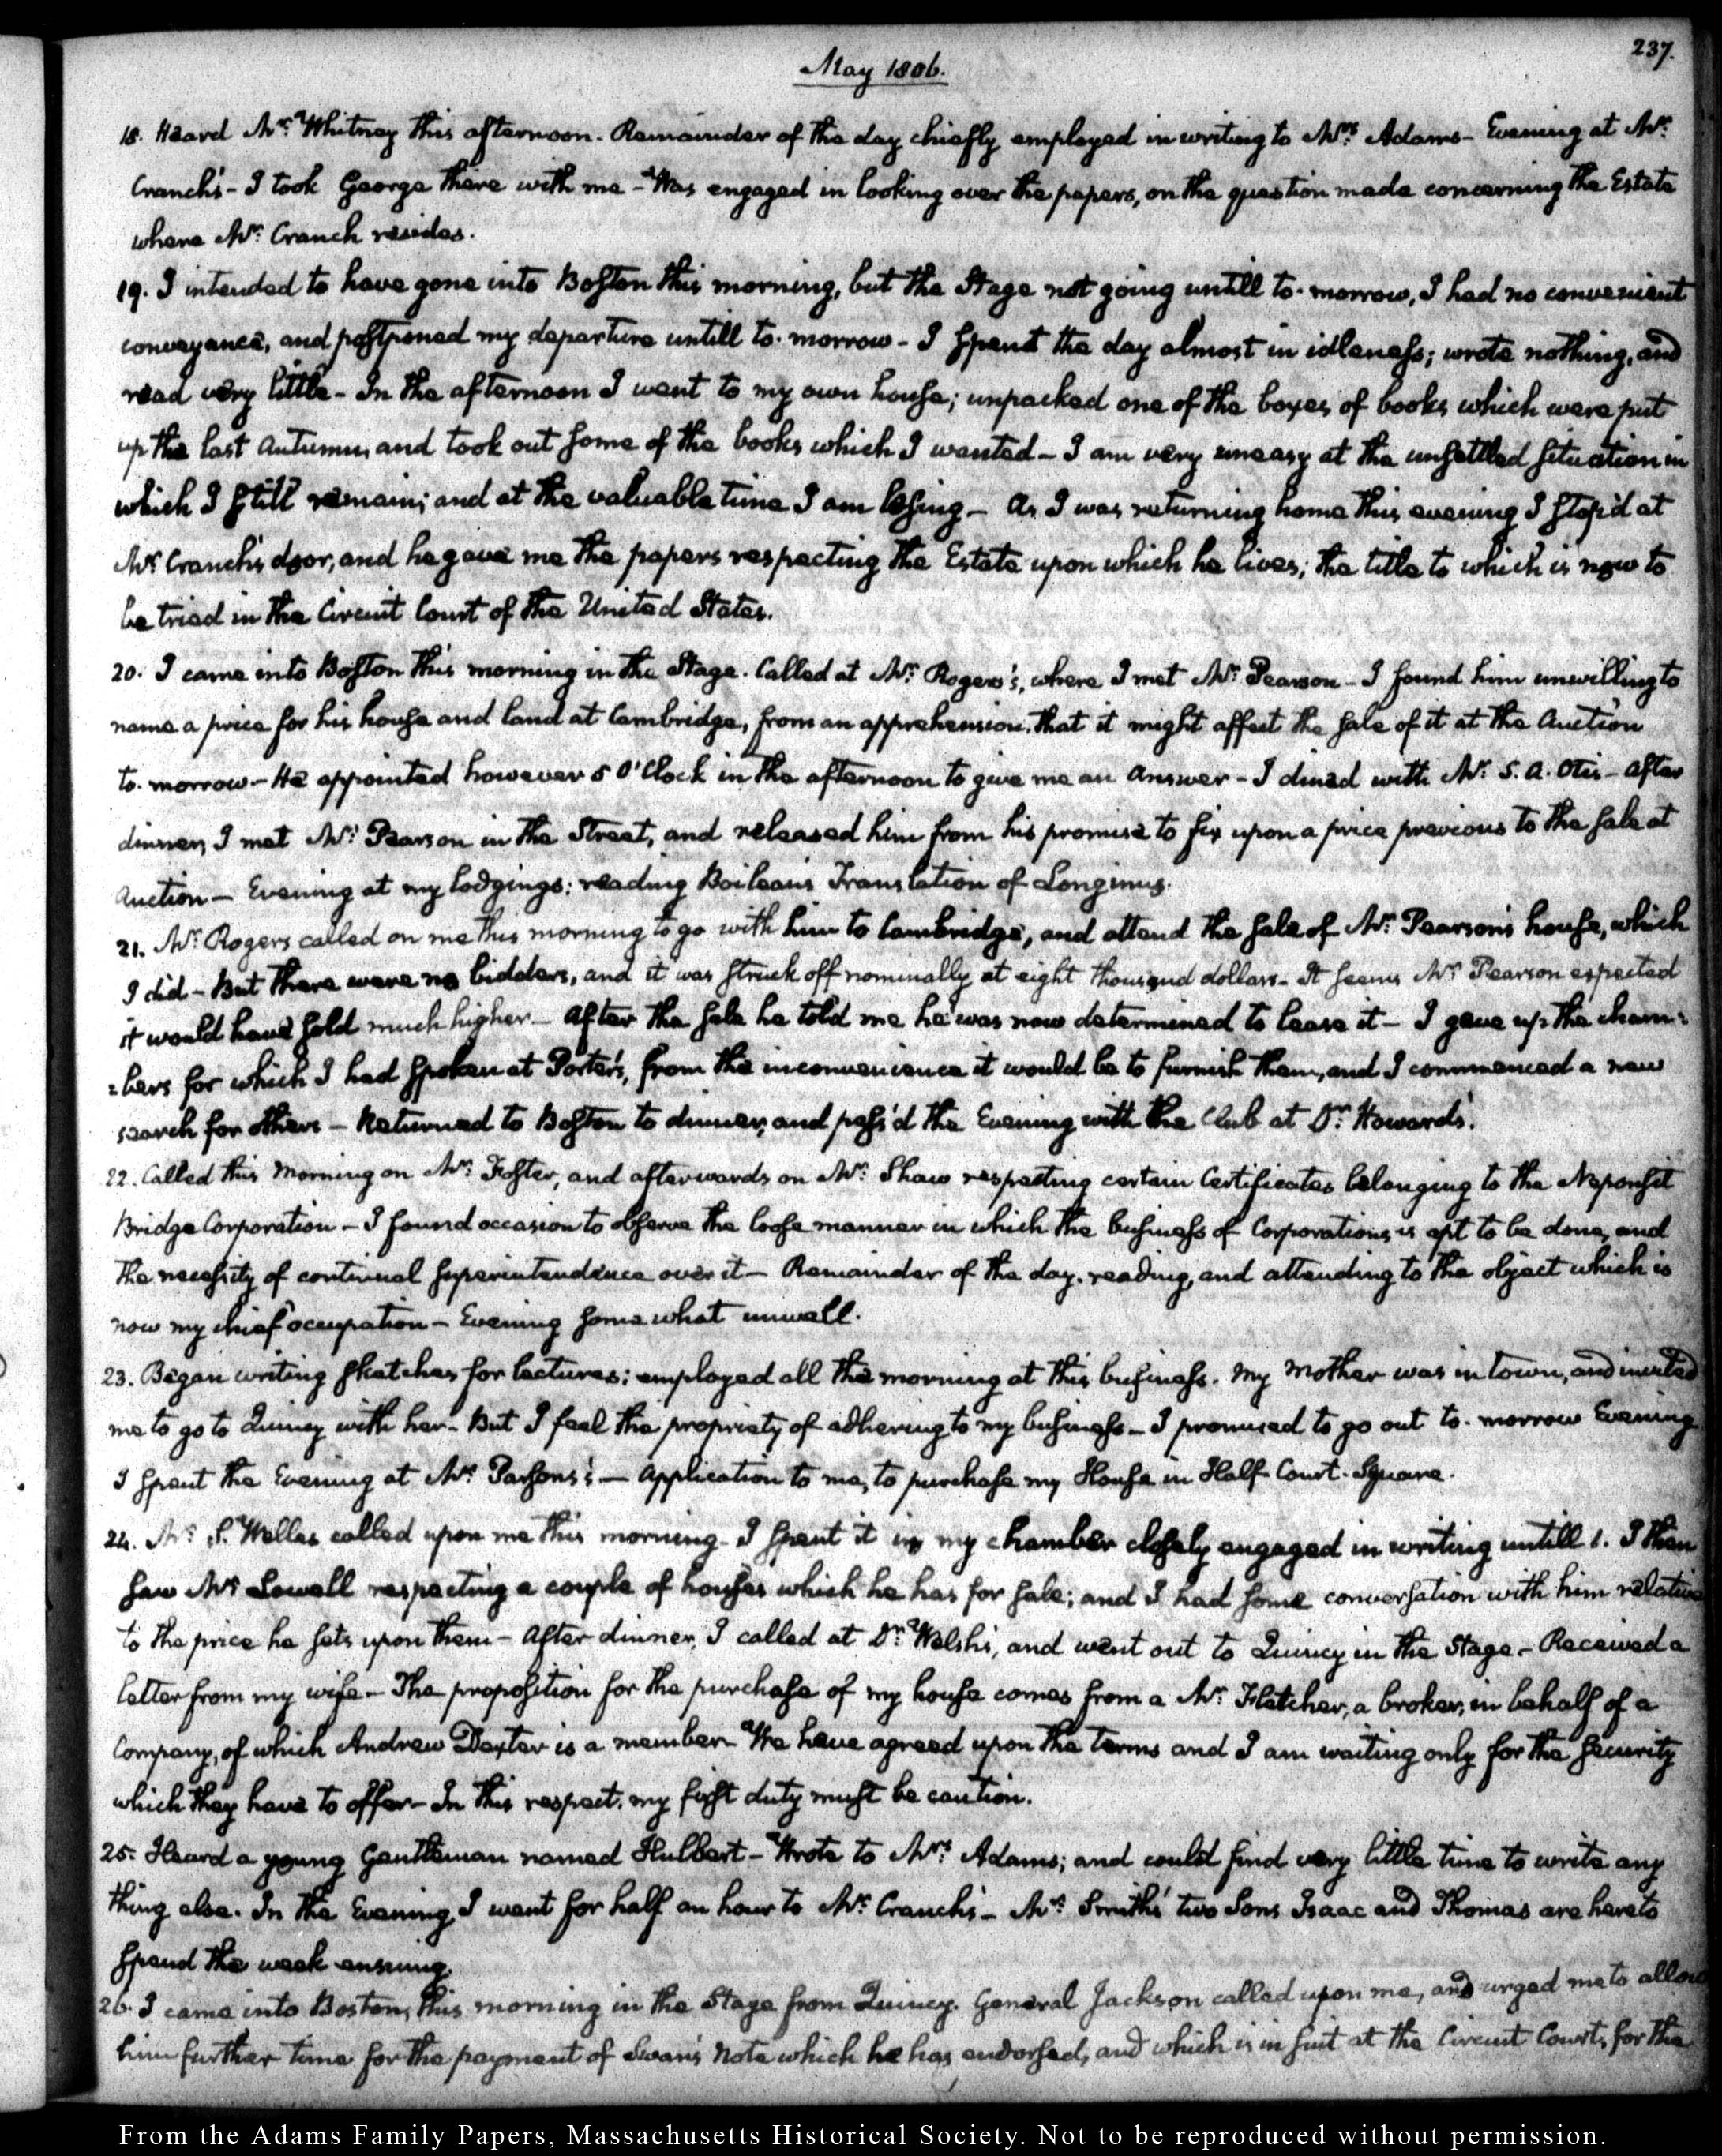 237.
May 1806.
18. Heard Mr: Whitney this afternoon. Remainder of the day chiefly employed in writing to Mrs Adams - Evening at Mr:
Cranch's - I took George there with me - Was engaged in looking over the papers, on the question made concerning the Estate
where Mr: Cranch resides.
19. I intended to have gone into Boston this morning, but the Stage not going untill to-morrow, I had no convenient
conveyance, and postponed my departure untill to-morrow - I spent the day almost in idleness; wrote nothing, and
read very little - In the afternoon I went to my own house; unpacked one of the boxes of books which were put
up the last Autumn, and took out some of the books which I wanted - I am very uneasy at the unsettled situation in
which I still remain; and at the valuable time I am losing - As I was returning home this evening I stop'd at
Mr: Cranch's door, and he gave me the papers respecting the Estate upon which he lives; the title to which is now to
be tried in the Circuit Court of the United States.
20. I came into Boston this morning in the Stage. Called at Mr: Rogers's, where I met Mr: Pearson - I found him unwilling to
name a price for his house and land at Cambridge, from an apprehension that it might affect the sale of it at the Auction
to-morrow - He appointed however 5 O'Clock in the afternoon to give me an answer - I dined with Mr: S. A. Otis - After
dinner, I met Mr: Pearson in the Street, and released him from his promise to fix upon a price previous to the sale at
Auction - Evening at my lodgings: reading Boileau's Translation of Longinus.
21. Mr: Rogers called on me this morning to go with him to Cambridge, and attend the sale of Mr: Pearson's house, which
I did - But there were no bidders, and it was struck off nominally at eight thousand dollars - It seems Mr: Pearson expected
it would have sold much higher - After the sale he told me he was now determined to lease it - I gave up the cham-
-bers for which I had spoken at Porter's, from the inconvenience it would be to furnish them, and I commenced a new
search for others - Returned to Boston to dinner, and pass'd the Evening with the Club at Dr: Howard's.
22. Called this Morning on Mr: Foster, and afterwards on Mr: Shaw respecting certain Certificates belonging to the Neponsit
Bridge Corporation - I found occasion to observe the loose manner in which the business of Corporations is apt to be done, and
the necessity of continual superintendence over it - Remainder of the day, reading, and attending to the object which is
now my chief occupation - Evening somewhat unwell.
23. Began writing sketches for lectures; employed all the morning at this business. My Mother was in town, and invited
me to go to Quincy with her - But I feel the propriety of adhering to my business - I promised to go out to-morrow Evening
I spent the Evening at Mr: Parsons's - Application to me, to purchase my House in Half-Court-Square.
24. Mr: S. Welles called upon me this morning - I spent it in my chamber closely engaged in writing untill 1. I then
saw Mr: Lowell respecting a couple of houses which he has for sale; and I had some conversation with him relative
to the price he sets upon them - After dinner, I called at Dr: Welsh's, and went out to Quincy in the Stage - Received a
letter from my wife - The proposition for the purchase of my house comes from a Mr: Fletcher, a broker, in behalf of a
Company, of which Andrew Dexter is a member - We have agreed upon the terms and I am waiting only for the security
which they have to offer - In this respect, my first duty must be caution.
25. Heard a young Gentleman named Hulbert - Wrote to Mrs: Adams; and could find very little time to write any
thing else. In the Evening I went for half an hour to Mr: Cranch's - Mrs: Smith's two Sons Isaac and Thomas are here to
spend the week ensuing.
26. I came into Boston, this morning in the Stage from Quincy. General Jackson called upon me, and urged me to allow
him further time for the payment of Swan's Note which he has endorsed, and which is in suit at the Circuit Court, for the
From the Adams Family Papers, Massachusetts Historical Society. Not to be reproduced without permission.